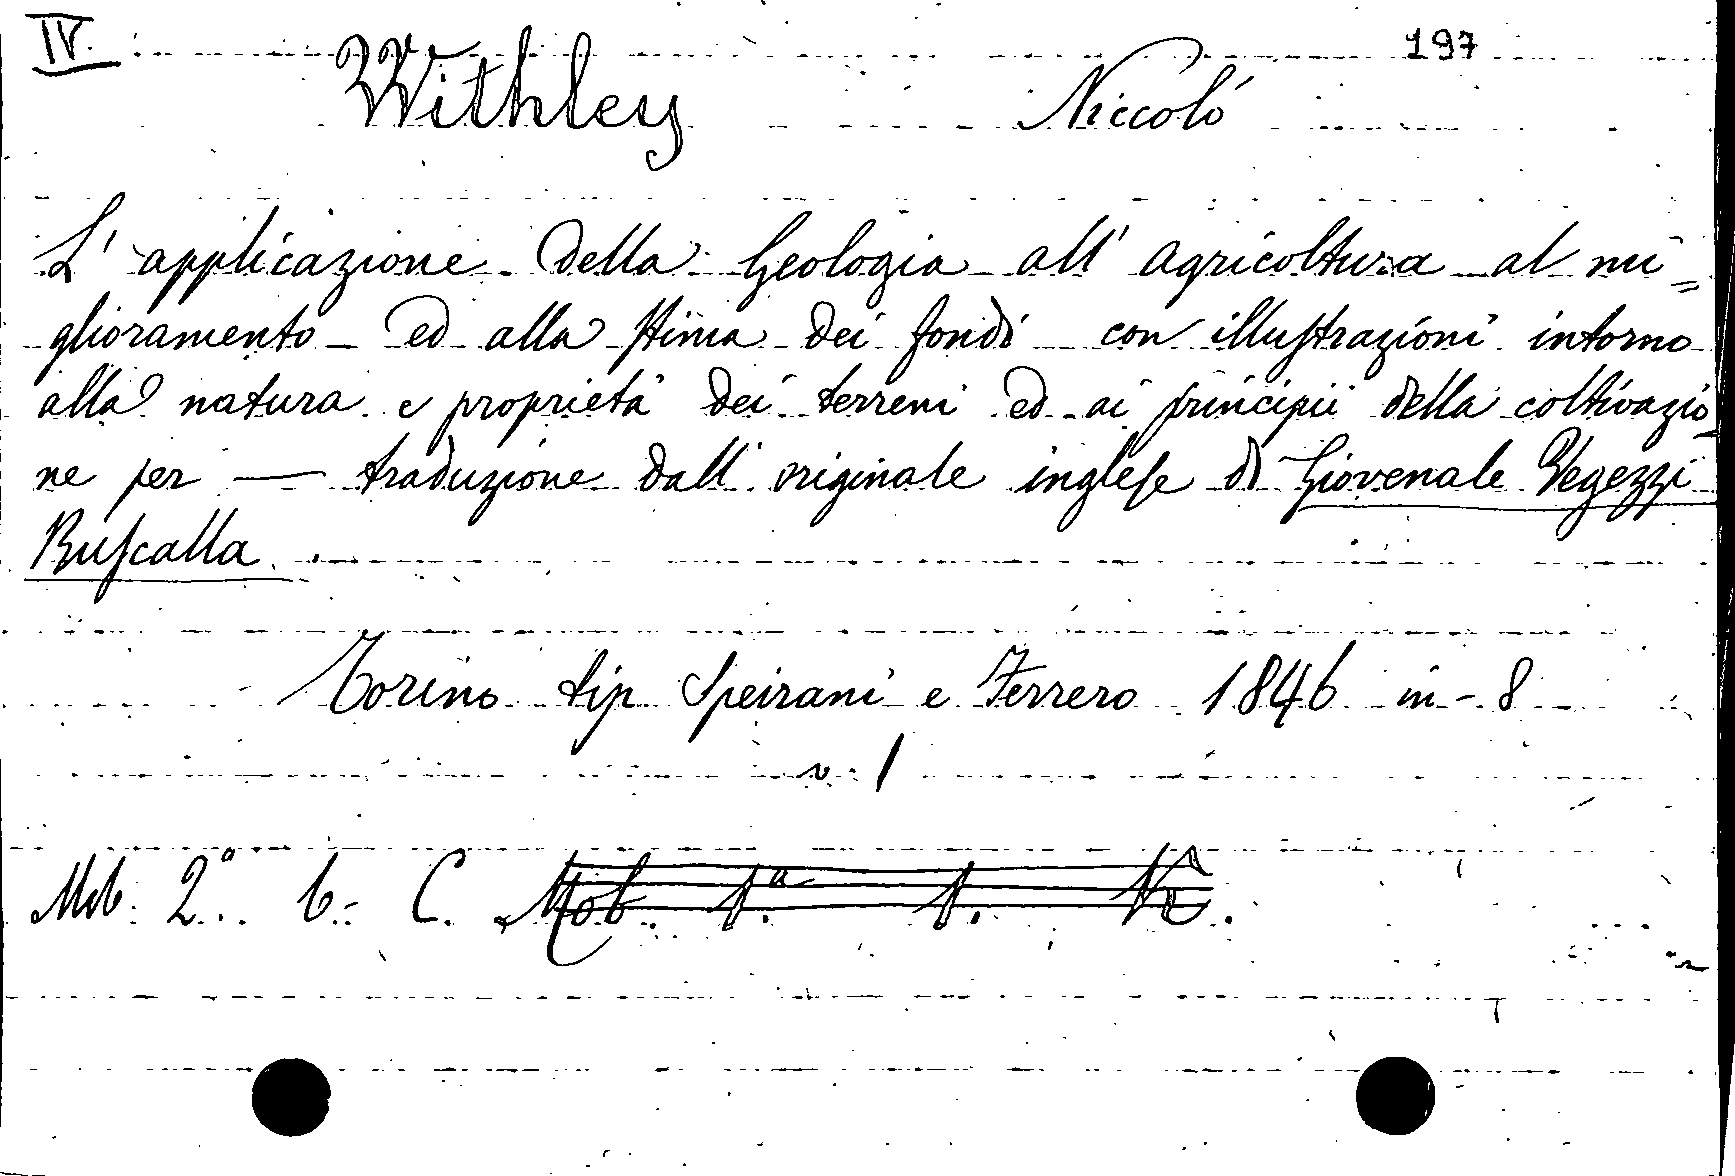 IV.
197
Withley Niccolò
L' applicazione della Geologia all' agricoltura al mi=
glioramento ed alla stima dei fondi con illustrazioni intorno
alla natura e proprietà dei terreni ed ai principii della coltivazio-
ne per — traduzione dall' originale inglese di Giovenale Vegezzi
Ruscalla.
Torino tip Speirani e Ferrero 1846 in-8
v. 1
Mob. 2ª. 6. C. Mob. 1.ª 1.